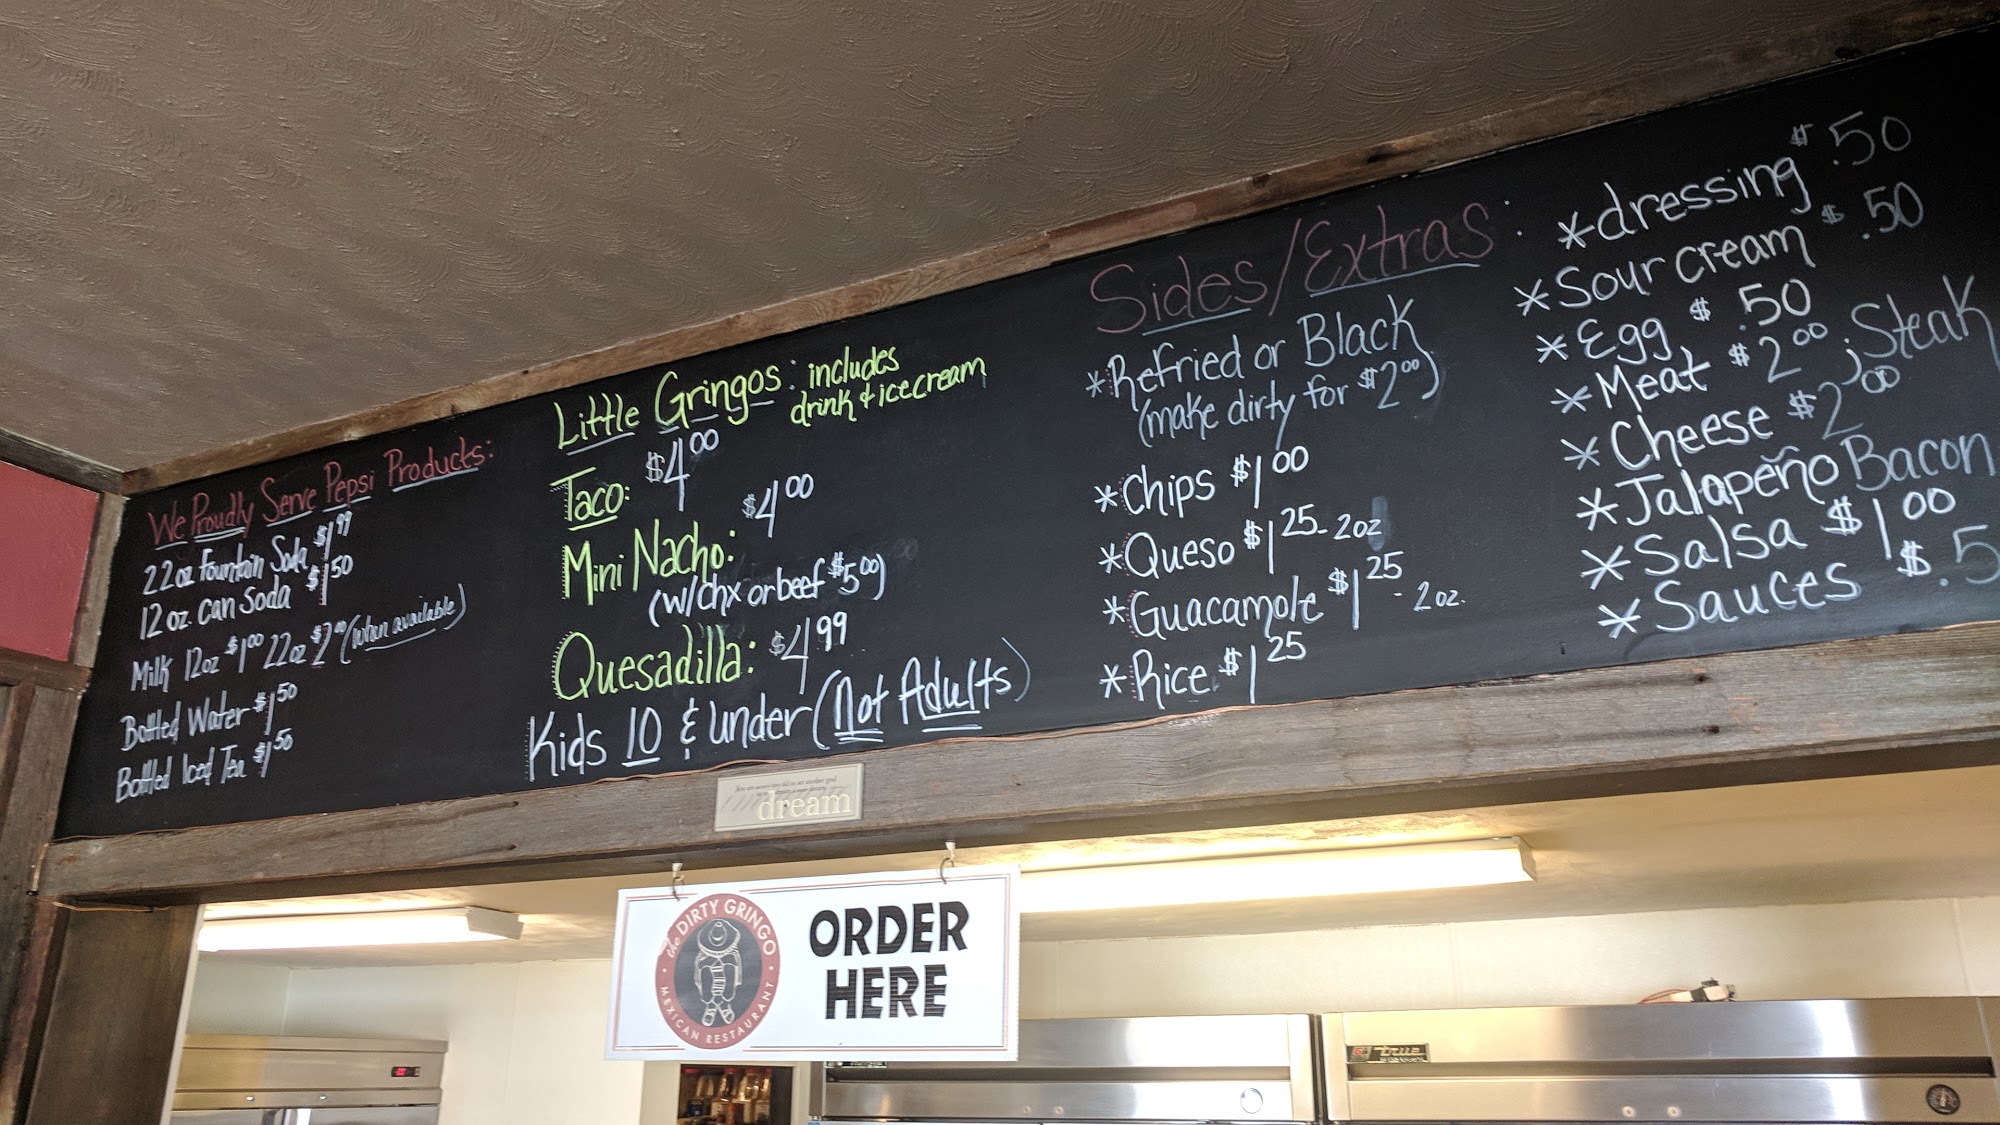 We Proudly Serve Pepsi Products:
22oz Fountain Soda $1.99
12oz. can Soda $1.50
Milk 12oz $1.00 22oz $2.00 (when available)
Bottled Water $1.50
Bottled Iced Tea $1.50
Little Gringos: includes
drink & ice cream
Taco: $4.00
Mini Nacho: $4.00
(w/chx or beef $5.00)
Quesadilla: $4.99
Kids 10 & under (Not Adults)
Sides/Extras:
*Refried or Black
(make dirty for $2.00)
*Chips $1.00
*Queso $1.25 - 2oz
*Guacamole $1.25 - 2oz.
*Rice $1.25
*dressing $.50
*Sour cream $.50
*Egg $.50
*Meat $2.00; Steak
*Cheese $2.00
*Jalapeño Bacon
*Salsa $1.00
*Sauces $.5
dream
the DIRTY GRINGO
MEXICAN RESTAURANT
ORDER
HERE
true